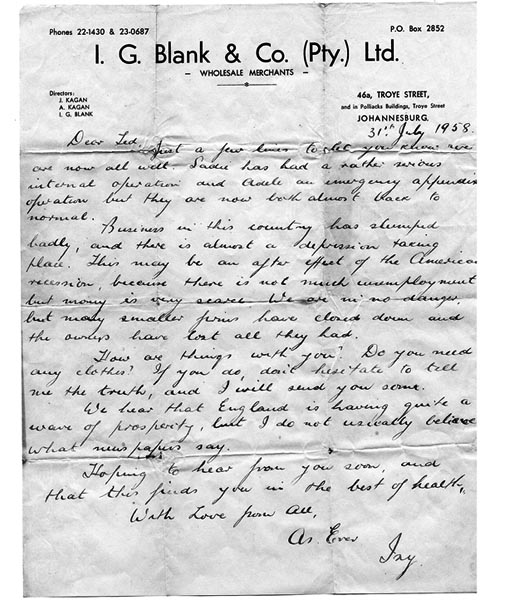 Phones 22-1430 & 23-0687
P.O. Box 2852
I. G. Blank & Co. (Pty.) Ltd.
- WHOLESALE MERCHANTS -
Directors:
J. KAGAN
A. KAGAN
I. G. BLANK
46a, TROYE STREET,
and in Polliacks Buildings, Troye Street
JOHANNESBURG.
31st July 1958.
Dear Ted, Just a few lines to let you know we
are now all well. Sadie has had a rather serious
internal operation and Adele an emergency appendix
operation but they are now both almost back to
normal.
Business in this country has slumped
badly, and there is almost a depression taking
place. This may be an after effect of the American
recession, because there is not much unemployment
but money is very scarce. We are in no danger,
but many smaller firms have closed down and
the owners have lost all they had.
How are things with you? Do you need
any clothes? If you do, don't hesitate to tell
me the truth, and I will send you some.
We hear that England is having quite a
wave of prosperity, but I do not usually believe
what newspapers say.
Hoping to hear from you soon, and
that this finds you in the best of health,
With Love from All,
As Ever
Izy.